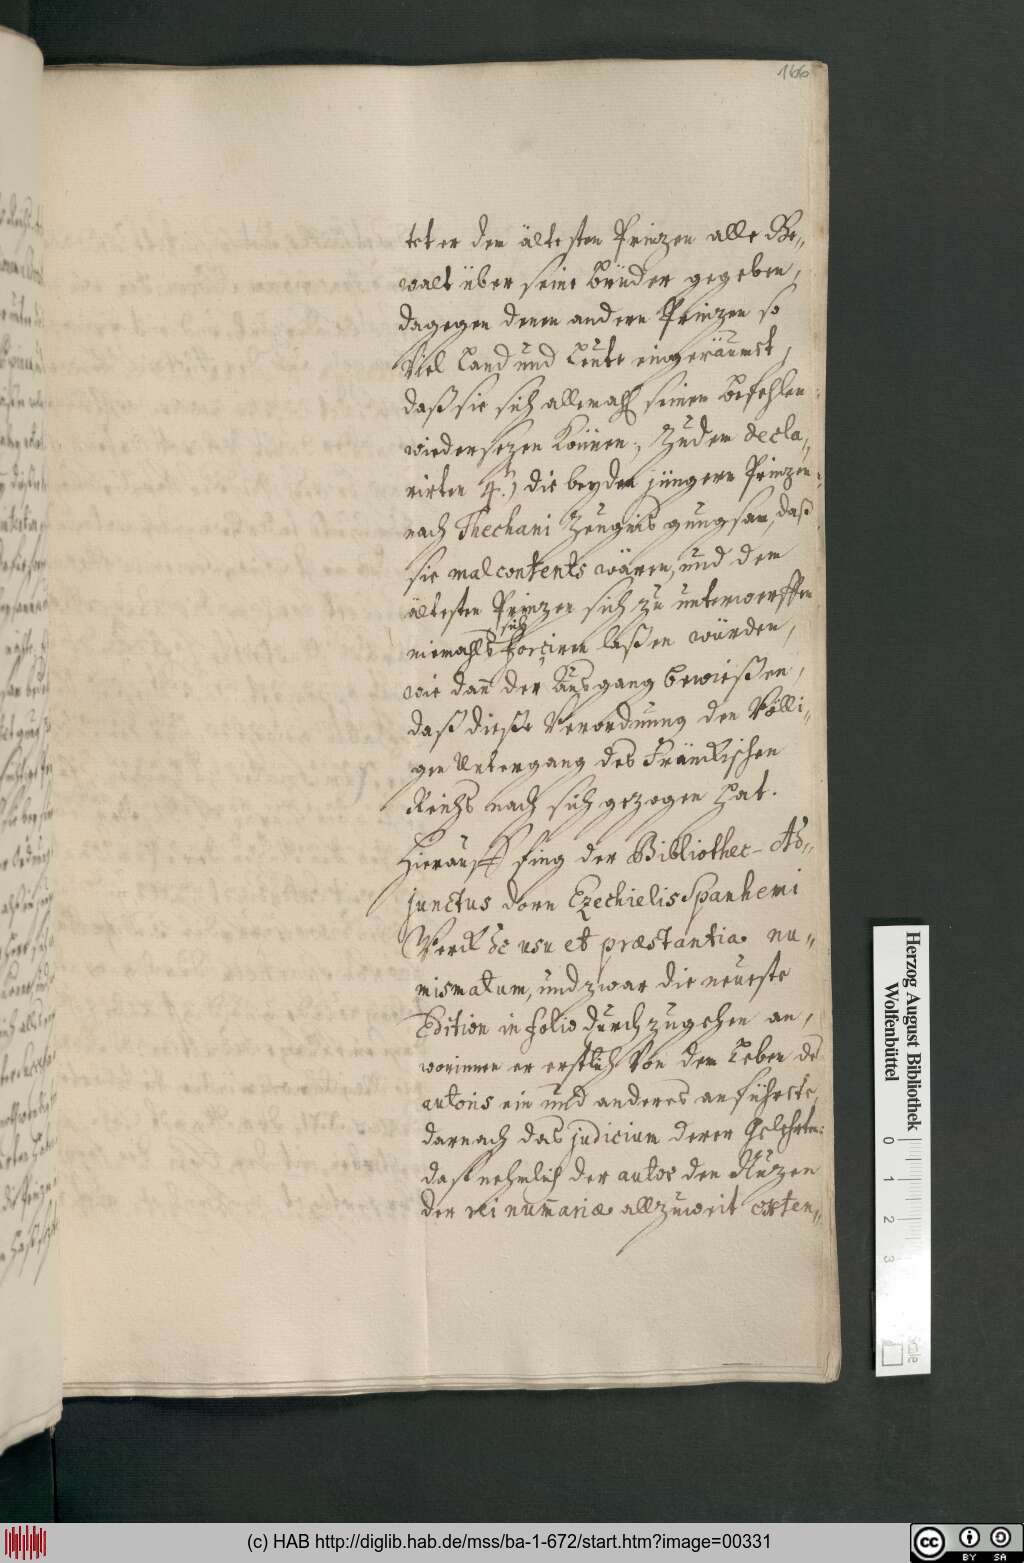 166
tet er dem ältesten Prinzen alle Ge„
walt über seine brüder gegeben,
dagegen denen andern Prinzen so
Viel Land und Leute eingeräumet,
daß sie sich allemahl seinen befehlen
wiedersezen können., Zudem decla„
rirten 4.) die beyden jüngern Prinzen
nach Thechani Zeugnis gnugsam, daß
sie malcontents wären, und dem
ältesten Prinzen sich zu unterwerffen
niemahls sich forçiren laßen würden,
wie dan̄ der Ausgang bewießen,
daß dieße Verordnung den Völli„
gen Untergang des Fränkischen
Reichs nach sich gezogen hat.
Hierauff fing der Bibliothec-Ad„
junctus dorn Ezechielis Spanhemi
Werck de usu et præstantia nu„
mismatum, und zwar die neueste
Edition in folio durchzugehen an,
worinnen er erstlich Von dem Leben des
autoris ein und anderes anführete,
darnach das judicium derer Gelehrten:
daß nehmlich der autor den Nuzen
der rei num̄ariæ allzuweit exten„
Herzog August Bibliothek
Wolfenbüttel
0 1 2 3
(c) HAB http://diglib.hab.de/mss/ba-1-672/start.htm?image=00331
cc BY SA